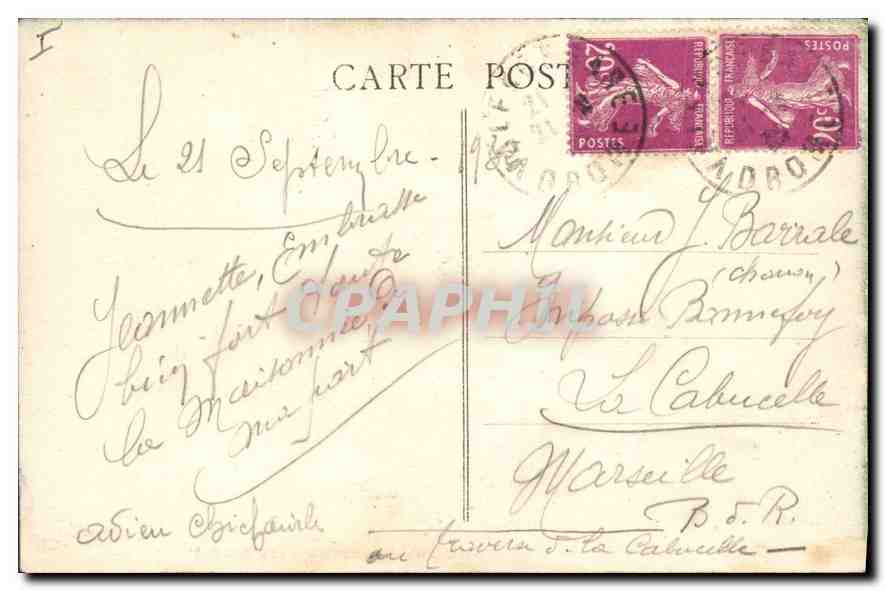 I
CARTE POST
Le 21 Septembre - 
Jeannette, Embrasse
bien fort toute
la Maisonnée, De
ma part
adieu
20c
POSTES
REPUBLIQUE FRANÇAISE
POSTES
REPUBLIQUE FRANÇAISE
Monsieur J. Barrale
Impasse Bonnefoy
La Cabucelle
Marseille
B. d. R.
au travera d. la Cabucelle
CPAPHIL